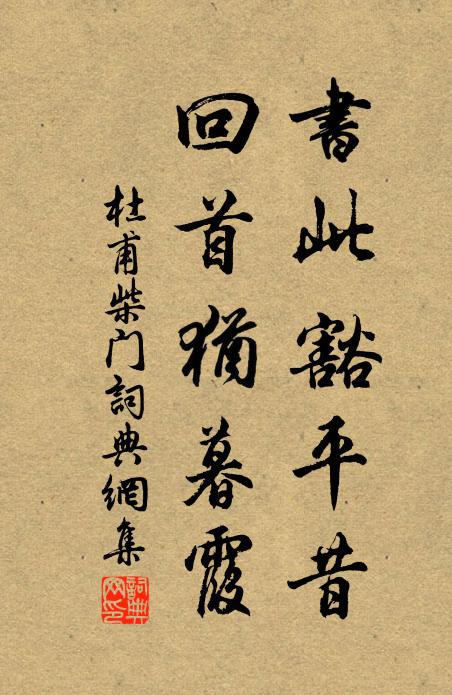 書此豁平昔
回首猶暮霞
杜甫柴门詞典網集
詞典网印